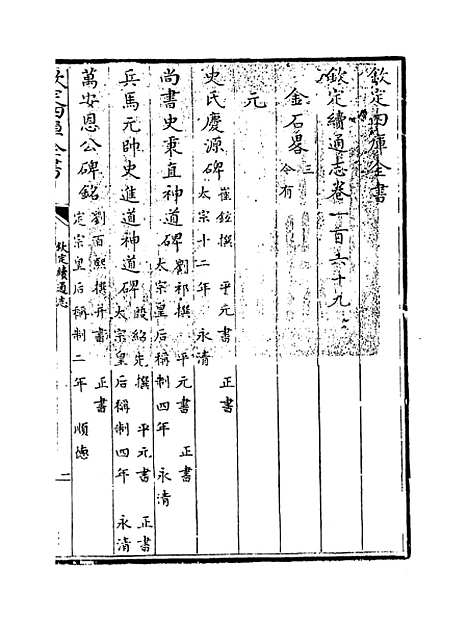 欽定四庫全書
欽定續通志卷一百六十九
金石畧三今有
元
史氏慶源碑崔鉉撰 平元書 正書
太宗十二年 永清
尚書史秉直神道碑劉祁撰 平元書 正書
太宗皇后稱制四年 永清
兵馬元帥史進道神道碑段紹先撰 平元書 正書
太宗皇后稱制四年 永清
萬安恩公碑銘劉百熙撰并書 正書
定宗皇后稱制二年 順德
欽定四庫全書
欽定續通志